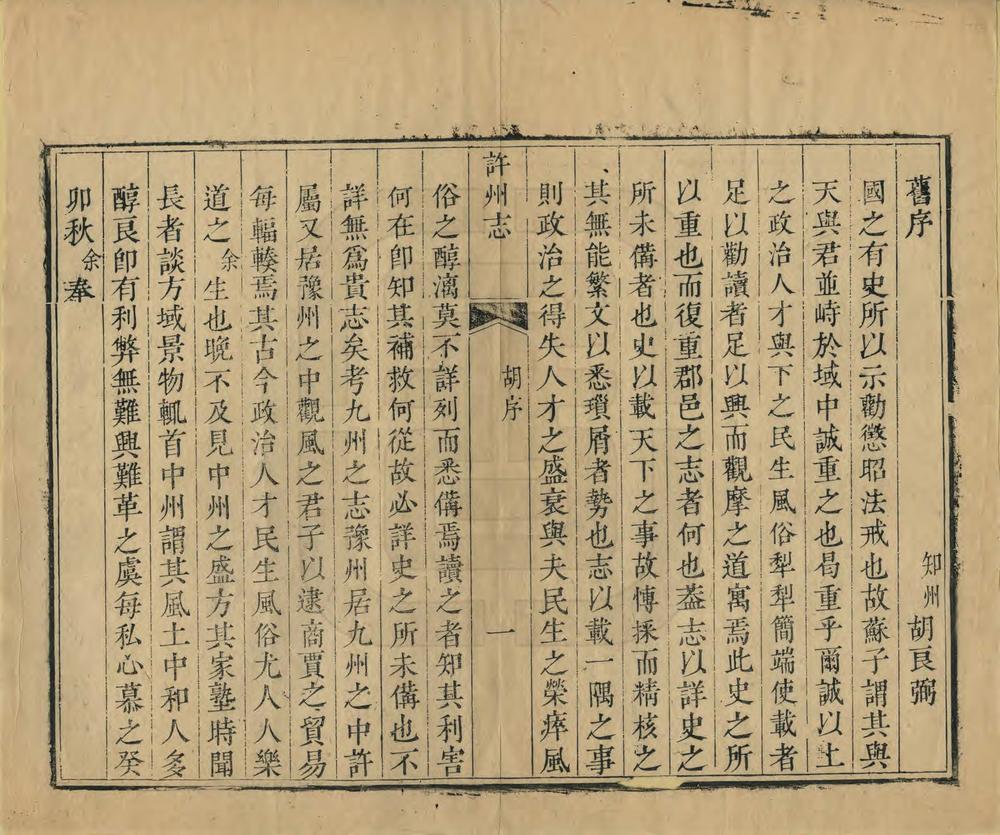 舊序
知州胡良弼
國之有史所以示勸懲昭法戒也故蘇子謂其與
天與君並峙於域中誠重之也曷重乎爾誠以上
之政治人才與下之民生風俗犁犁簡端使載者
足以勸讀者足以興而觀摩之道寓焉此史之所
以重也而復重郡邑之志者何也蓋志以詳史之
所未備者也史以載天下之事故慱採而精核之
其無能繁文以悉瑣屑者勢也志以載一隅之事
則政治之得失人才之盛衰與夫民生之榮瘁風
許州志
胡序
一
俗之醇漓莫不詳列而悉備焉讀之者知其利害
何在卽知其補救何從故必詳史之所未備也不
詳無爲貴志矣考九州之志豫州居九州之中許
屬又居豫州之中觀風之君子以逮商賈之貿易
每輻輳焉其古今政治人才民生風俗尤人人樂
道之余生也晚不及見中州之盛方其家塾時聞
長者談方域景物輒首中州謂其風土中和人多
醇良卽有利弊無難興難革之虞每私心慕之癸
卯秋余奉